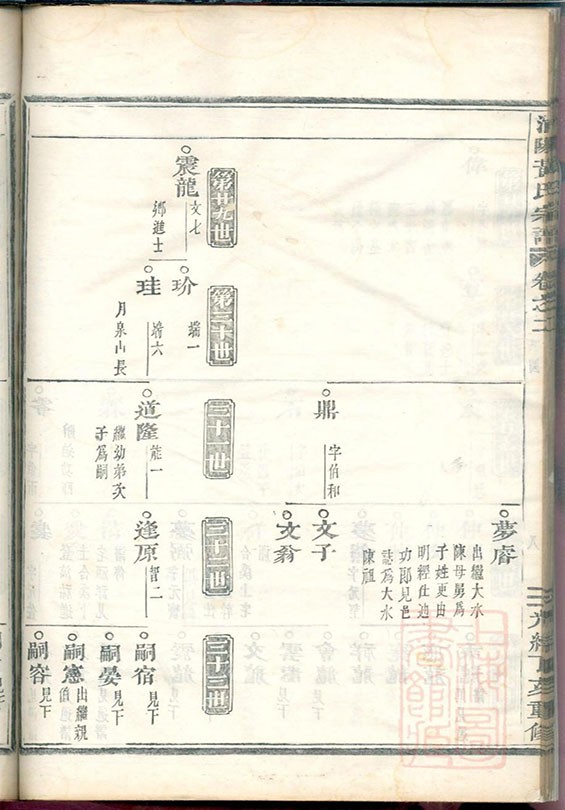 卷之二
光緒丁亥重修
第廿九世
震龍
文七
鄉進士
第三十世
玠
瑞一
珪
瑞六
月泉山長
三十一世
鼎
字伯和
道隆
能一
繼幼弟次
子為嗣
三十二世
夢𪾢
出繼大水
陳母舅為
子姓更由
明經仕迪
功郎見邑
誌為大水
陳祖
文子
文翁
逢原
智二
三十三世
嗣宿
見下
嗣晏
見下
嗣憲
出繼親
嗣容
見下